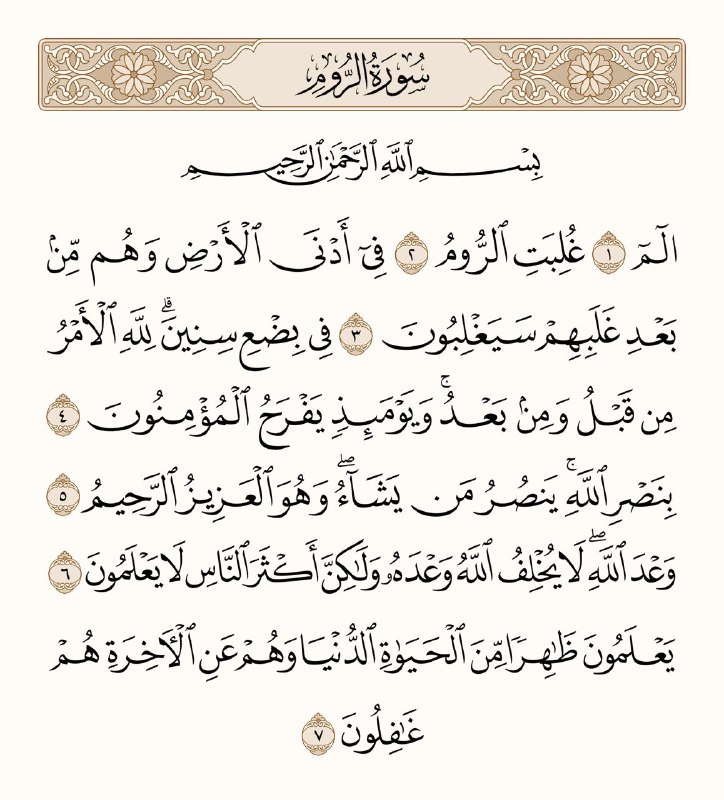 سُورَةُ الرُّومِ
بِسْمِ ٱللَّهِ ٱلرَّحْمَٰنِ ٱلرَّحِيمِ
الٓمٓ ١ غُلِبَتِ ٱلرُّومُ ٢ فِىٓ أَدْنَى ٱلْأَرْضِ وَهُم مِّنۢ
بَعْدِ غَلَبِهِمْ سَيَغْلِبُونَ ٣ فِى بِضْعِ سِنِينَ ۗ لِلَّهِ ٱلْأَمْرُ
مِن قَبْلُ وَمِنۢ بَعْدُ ۚ وَيَوْمَئِذٍ يَفْرَحُ ٱلْمُؤْمِنُونَ ٤
بِنَصْرِ ٱللَّهِ ۚ يَنصُرُ مَن يَشَآءُ ۖ وَهُوَ ٱلْعَزِيزُ ٱلرَّحِيمُ ٥
وَعْدَ ٱللَّهِ ۖ لَا يُخْلِفُ ٱللَّهُ وَعْدَهُۥ وَلَٰكِنَّ أَكْثَرَ ٱلنَّاسِ لَا يَعْلَمُونَ ٦
يَعْلَمُونَ ظَٰهِرًا مِّنَ ٱلْحَيَوٰةِ ٱلدُّنْيَا وَهُمْ عَنِ ٱلْءَاخِرَةِ هُمْ
غَٰفِلُونَ ٧